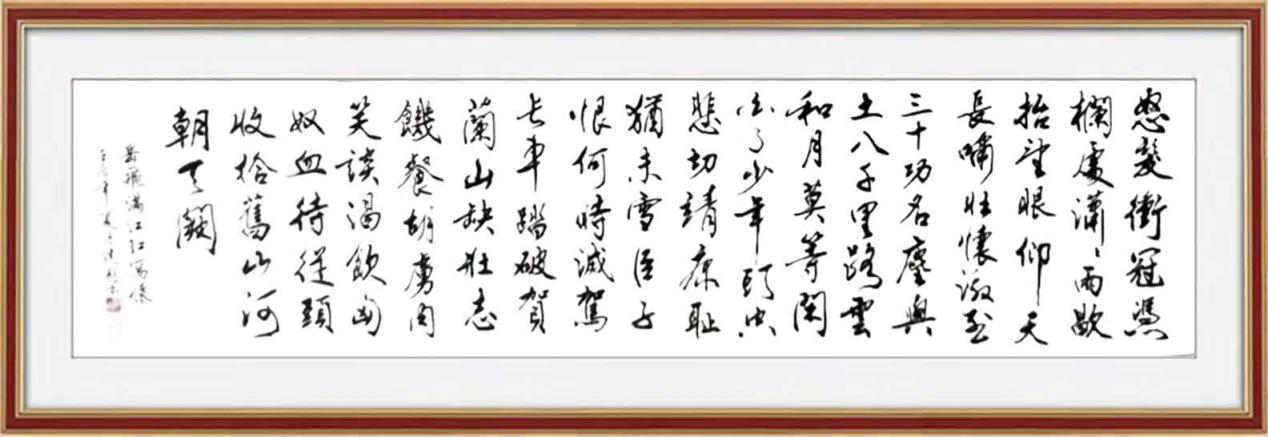 怒髮衝冠憑
欄處瀟〻雨歇
抬望眼仰天
長嘯壯懷激烈
三十功名塵與
土八千里路雲
和月莫等閑
白了少年頭空
悲切靖康恥
猶未雪臣子
恨何時滅駕
長車踏破賀
蘭山缺壯志
饑餐胡虜肉
笑談渴飲匈
奴血待從頭
收拾舊山河
朝天闕
岳飛滿江紅寫懷
年